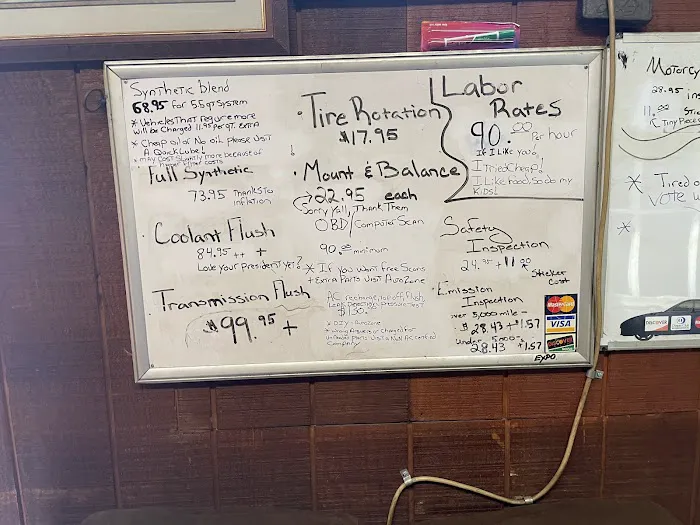 Synthetic blend
68.95 for 5.5 qt System
* Vehicles That require more
will be Charged 11.95 Per qt. Extra
* Cheap oil or No oil please Visit
A Quick Lube!
* May Cost Slightly more because of
Filter costs
Full Synthetic
73.95 Thanks to
inflation
Coolant Flush
84.95 ++ +
Love your President yet?
Transmission Flush
$99.95 +
Tire Rotation
$17.95
Mount & Balance
22.95 each
Sorry Yall, Thank Them
OBD/Computer Scan
90.00 minimum
* If you want free Scans
+ Extra Parts Visit AutoZone
AC recharge, top off, Flush,
Leak Detection, Pressure Test
$130.
* DIY = AutoZone
Company
Labor
Rates
90.00 Per hour
If I Like you!
I tried Cheap!
I Like food, So do my
Kids!
Safety
Inspection
24.95 + 11.00
Sticker
Cost
Emission
Inspection
over 5,000 mile -
$28.43 + 1.57
Under 5,000 -
28.43 + 1.57
MasterCard
VISA
DISCOVER
EXPO
Motorcy
28.95 ins
11.00 Stic
(Tiny Pieces
* Tired o
Vote w
*
DISCOVER
VISA